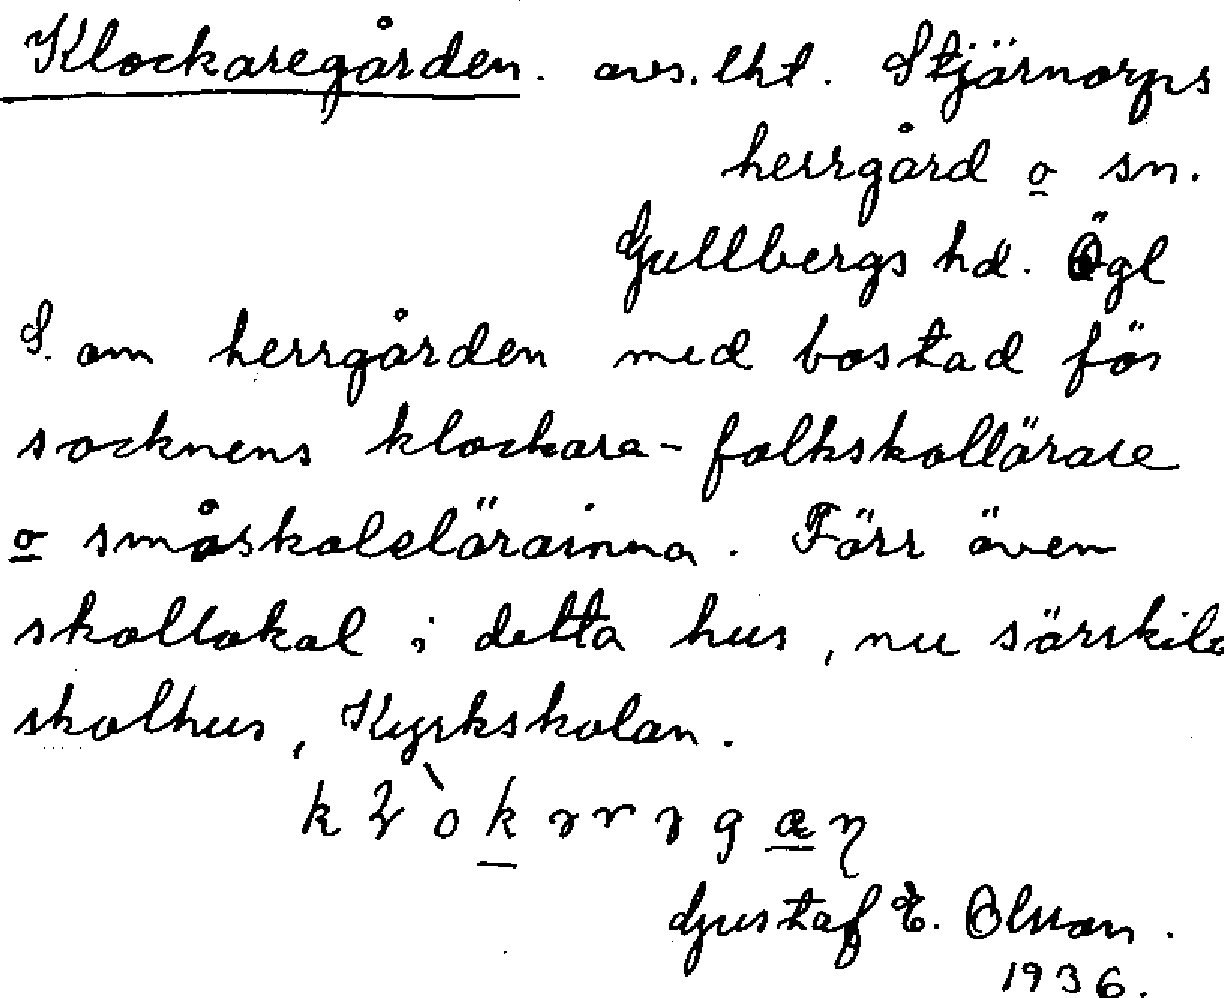 Klockaregården. avs. lht. Stjärnorps
herrgård o sn.
Gullbergs hd. Ögl
S. om herrgården med bostad för
socknens klockare-folkskollärare
o småskolelärarinna. Förr även
skollokal i detta hus, nu särskild
skolhus, Kyrkskolan.
Gustaf E. Olsson.
1936.